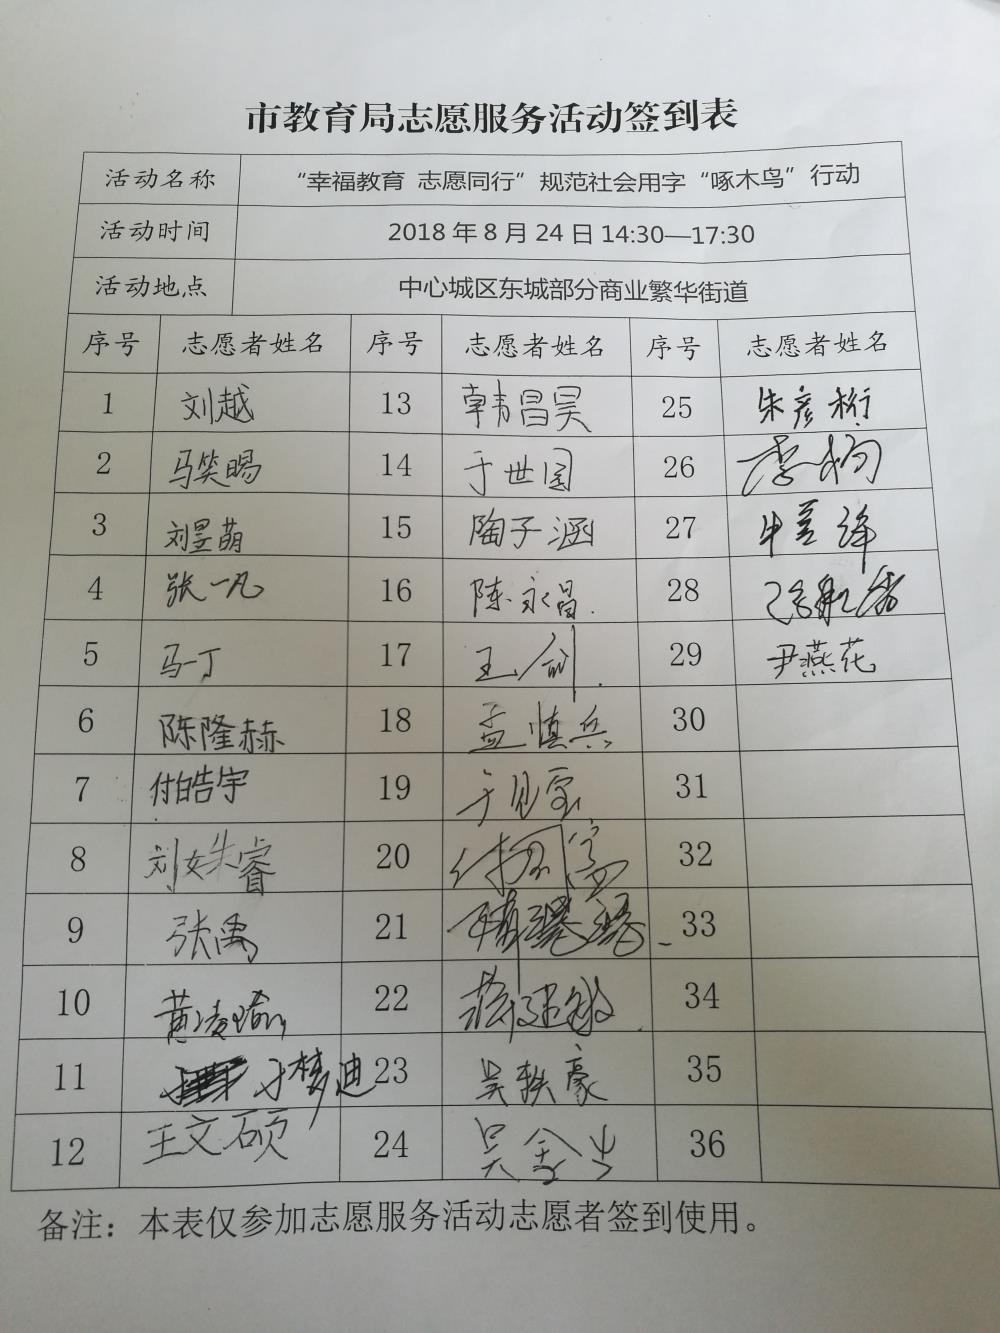 市教育局志愿服务活动签到表
活动名称 “幸福教育 志愿同行”规范社会用字“啄木鸟”行动
活动时间 2018年8月24日14:30—17:30
活动地点 中心城区东城部分商业繁华街道
序号 志愿者姓名 序号 志愿者姓名 序号 志愿者姓名
1 刘越 13 韩昌昊 25 朱彦桁
2 马笑喝 14 于世国 26 李杨
3 刘昱萌 15 陶子涵 27
4 张一凡 16 陈永昌 28
5 马一丁 17 王剑 29 尹燕花
6 陈隆赫 18 孟慎兵 30
7 付皓宇 19 于见宝 31
8 刘姝睿 20 32
9 张禹 21 33
10 黄凌瑜 22 34
11 于梦迪 23 吴轶豪 35
12 王文硕 24 吴金 36
备注：本表仅参加志愿服务活动志愿者签到使用。